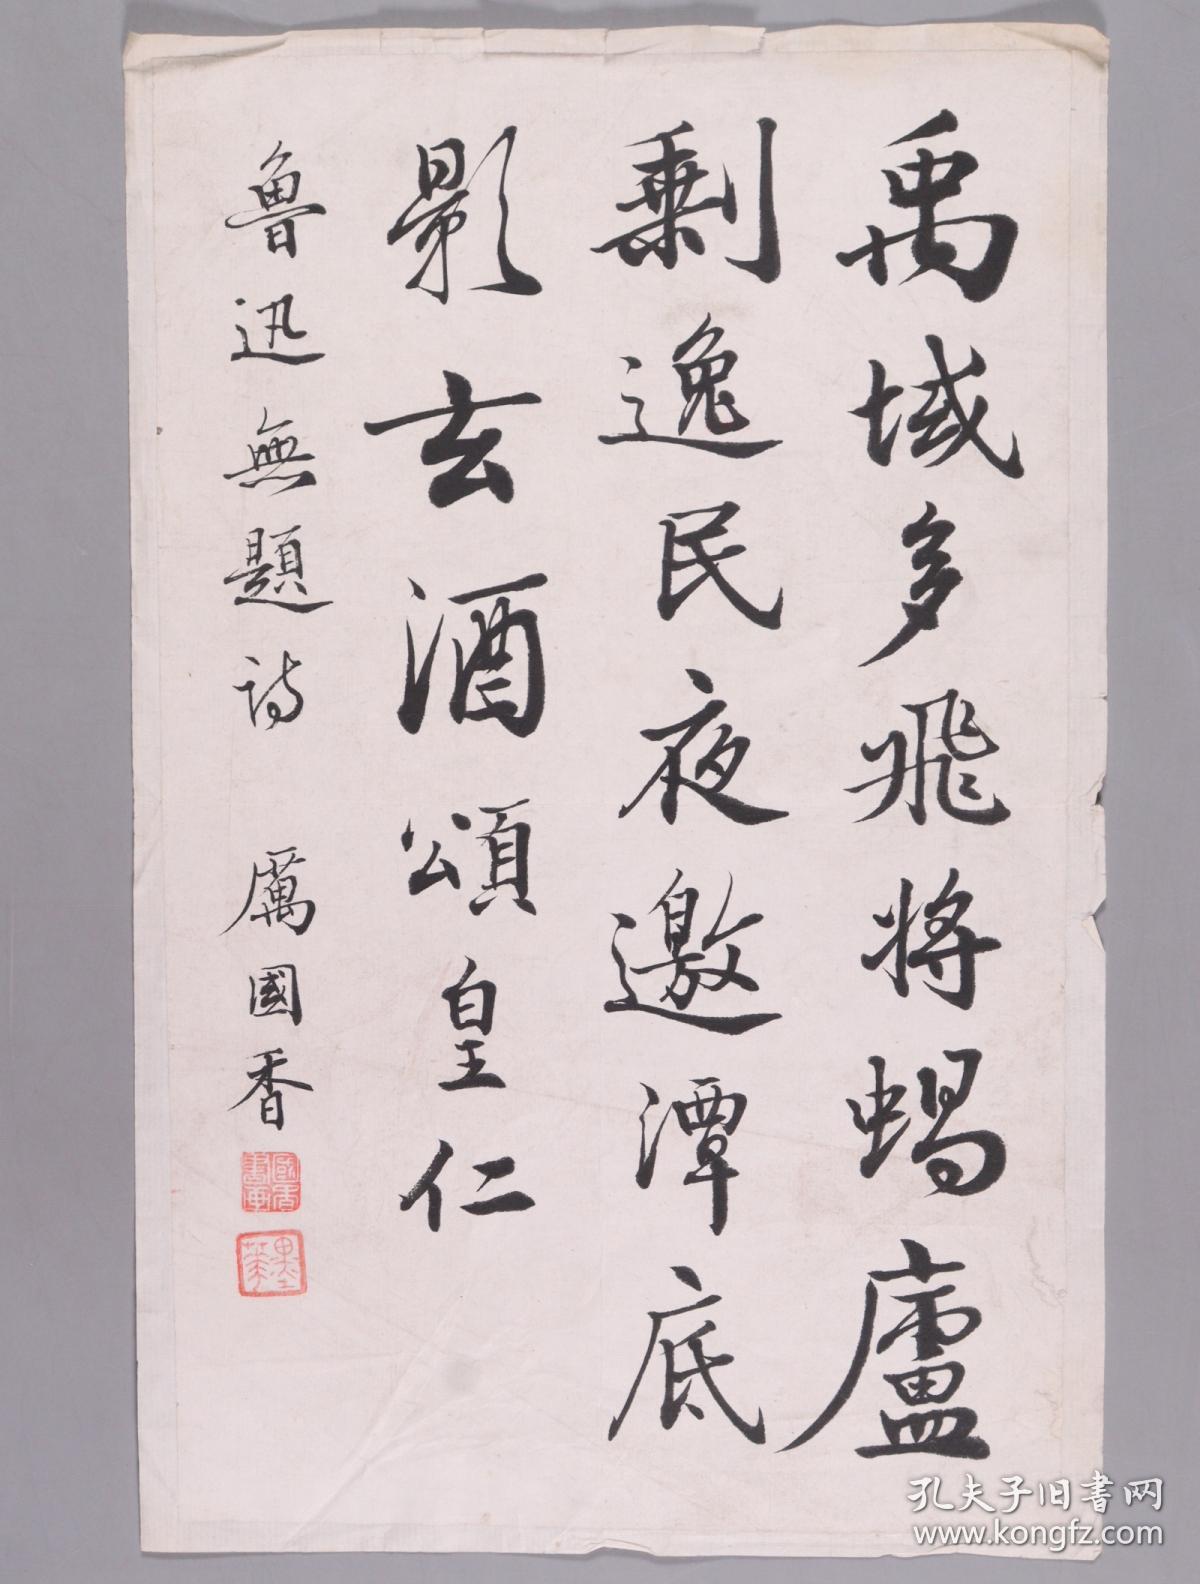 禹域多飛將蝸廬
剩逸民夜邀潭底
影玄酒頌皇仁
魯迅無題詩 厲國香
國香書畫
墨華
孔夫子旧書网
www.kongfz.com